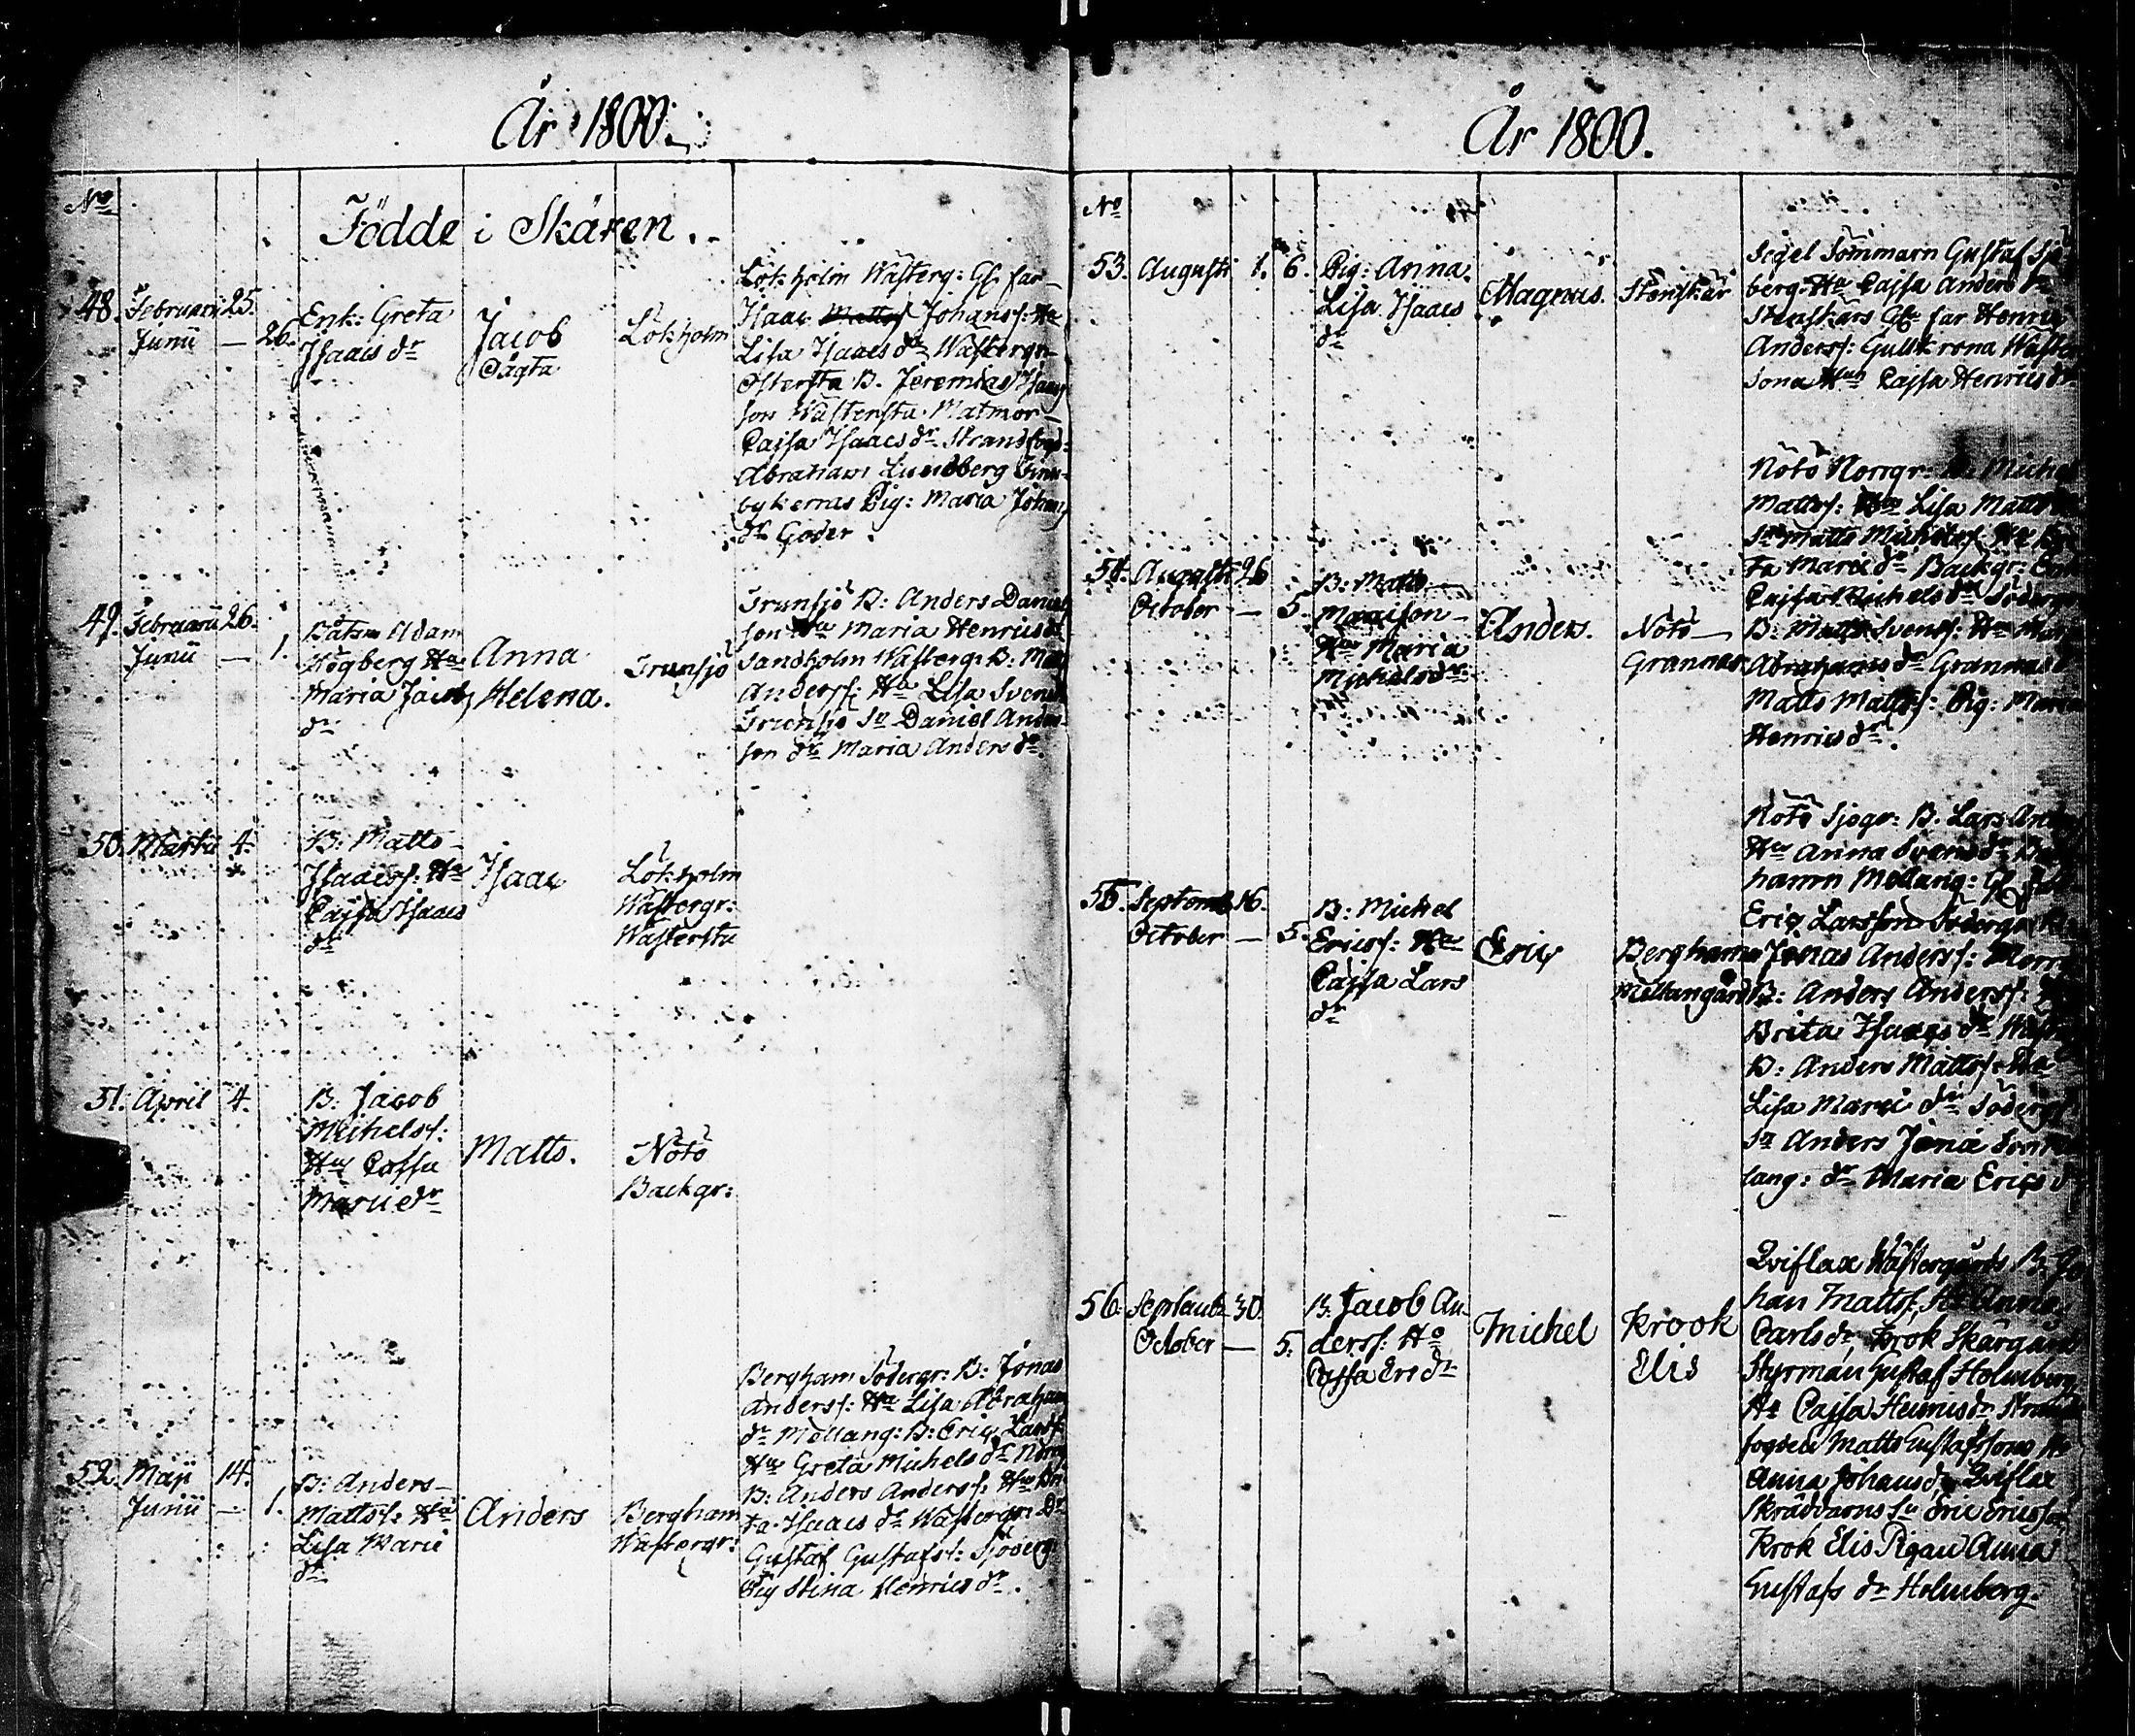 År 1800.
No
Födde i Skären.
48. Februarii 25.
Junii — 26.
Enk: Greta
Isaacs dr
Jacob
Oägta
Lökholm
Lökholm Wästerg: Gl. far
Isaac Johanss: Hu
Lisa Isaacs dr Wästergr
Östersta B. Jeremias Isaacs
son Wästersta Matmor
Cajsa Isaacs dr Strandfogd:
Abraham Lundberg Finn-
bykernas Pig: Maria Johans
dr Goder.
49. Februarii 26.
Junii — 1.
Båtsm Adam
Högberg Hu
Maria Jacobs
dr
Anna
Helena.
Trunsjö
Trunsjö B: Anders Daniels
son Hu Maria Henrics dr
Sandholm Wästerg: B: Matts
Anderss: Hu Lisa Svens
Trunsjö Sn Daniel Anders
son dr Maria Anders dr.
50. Martii 4.
B: Matts
Isaacss: Hu
Cajsa Isaacs
dr
Isaac
Lökholm
Wästergr:
Wästersta
51. April 4.
B: Jacob
Michelss:
Hu Cajsa
Marie dr
Matts.
Nötö
Backgr:
52. Maji 14.
Junii — 1.
B: Anders
Mattss: Hu
Lisa Marie
dr
Anders
Bergham
Wästergr:
Bergham Södergr: B: Jonas
Anderss: Hu Lisa Abraham
dr Mellang: B: Eric Larss:
Hu Greta Michels dr Norrg
B: Anders Anderss: Hu Bri
ta Isaacs dr Wästergr: Dr
Gustaf Gustafss: Sjöberg
Pig Stina Henrics dr.
År 1800.
No
53. Augusti 1. 6.
Pig: Anna
Lisa Isaacs
dr
Magnus.
Stenskär
Segel Sömmarn Gustaf Sjö
berg Hu Cajsa Anders dr
Stenskärs Gl: far Henric
Anderss: Gullkrona Wäster
sona Hu Cajsa Henrics dr
54. Augusti 26
October — 5.
B: Matts
Maaison
Hu Maria
Michels dr
Anders.
Nötö
Grannas
Nötö Norrgr: B: Michel
Mattss: Hu Lisa Matts
Sn Matts Michelss Hu
ta Marie dr Backgr:
Cajsa Michels dr Södergr
B: Matts Svenss: Hu
Abrahams dr Grannas
Matts Mattss: Pig: Maria
Henrics dr.
55. Septemb 16.
October — 5.
B: Michel
Ericss: Hu
Cajsa Lars
dr
Eric
Bergham
Mellangård
Nötö Sjögr: B. Lars
Hu Anna Svens dr
hamn Mellang: Gl
Eric Larsson Södergr
Jonas Anderss: Norrg
B: Anders Anderss:
Brita Isaacs dr Wäst
B: Anders Mattss: Hu
Lisa Marie dr Södergr
Sn Anders Jonæ Son
lang: dr Maria Erics dr
56. Septemb 30.
October — 5.
B: Jacob An-
derss: Ho
Cajsa Eric dr
Michel
Krook
Elis
Qviflax Wästergårds B. Jo
han Mattss, Ho Anna
Carls dr, Krok Skärgårds
Styrman Gustaf Holmberg
Ho Cajsa Henricsdr Strand
fogden Matts Gustafssons Ho
Anna Johansdr, Qviflax
Skräddarns Sn Eric Ericsson
Krok Elis Pigan Anna
Gustafs dr Holmberg.